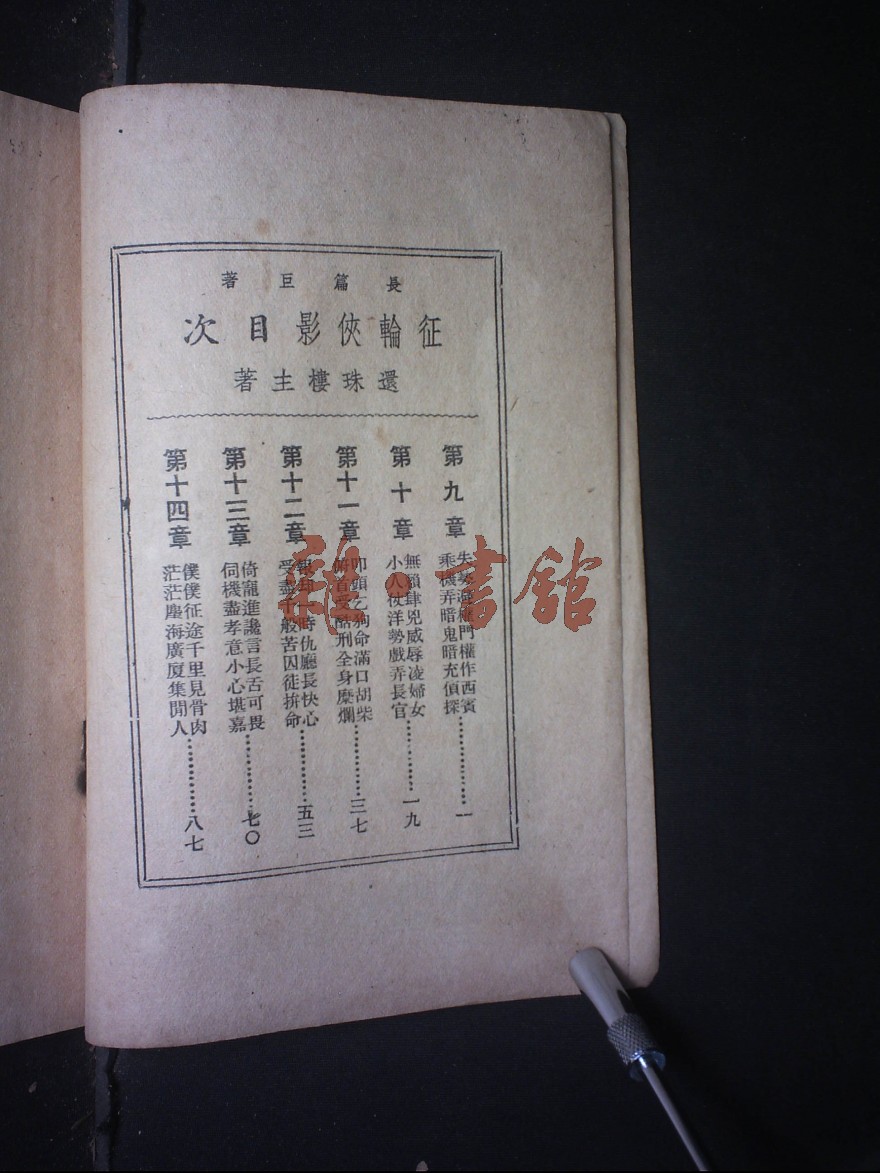 長篇巨著
征輪俠影目次
還珠樓主著
第九章
失 門權作西賓
乘機弄暗鬼暗充偵探
一
第十章
無賴肆兇威辱凌婦女
小人仗洋勢戲弄長官
一九
第十一章
叩頭乞狗命滿口胡柴
俯首受酷刑全身糜爛
三七
第十二章
報却一時仇廳長快心
受盡千般苦囚徒拚命
五三
第十三章
倚寵進讒言長舌可畏
伺機盡孝意小心堪嘉
七〇
第十四章
僕僕征途千里見骨肉
茫茫塵海廣廈集閒人
八七
雜·書館